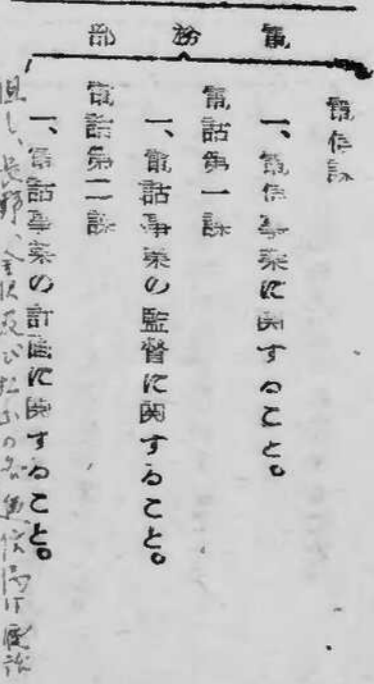 電務部
電信課
一、電信事業に関すること。
電話第一課
一、電話事業の監督に関すること。
電話第二課
一、電話事業の計画に関すること。
但し、長野、金沢及び松山の各逓信局は電話